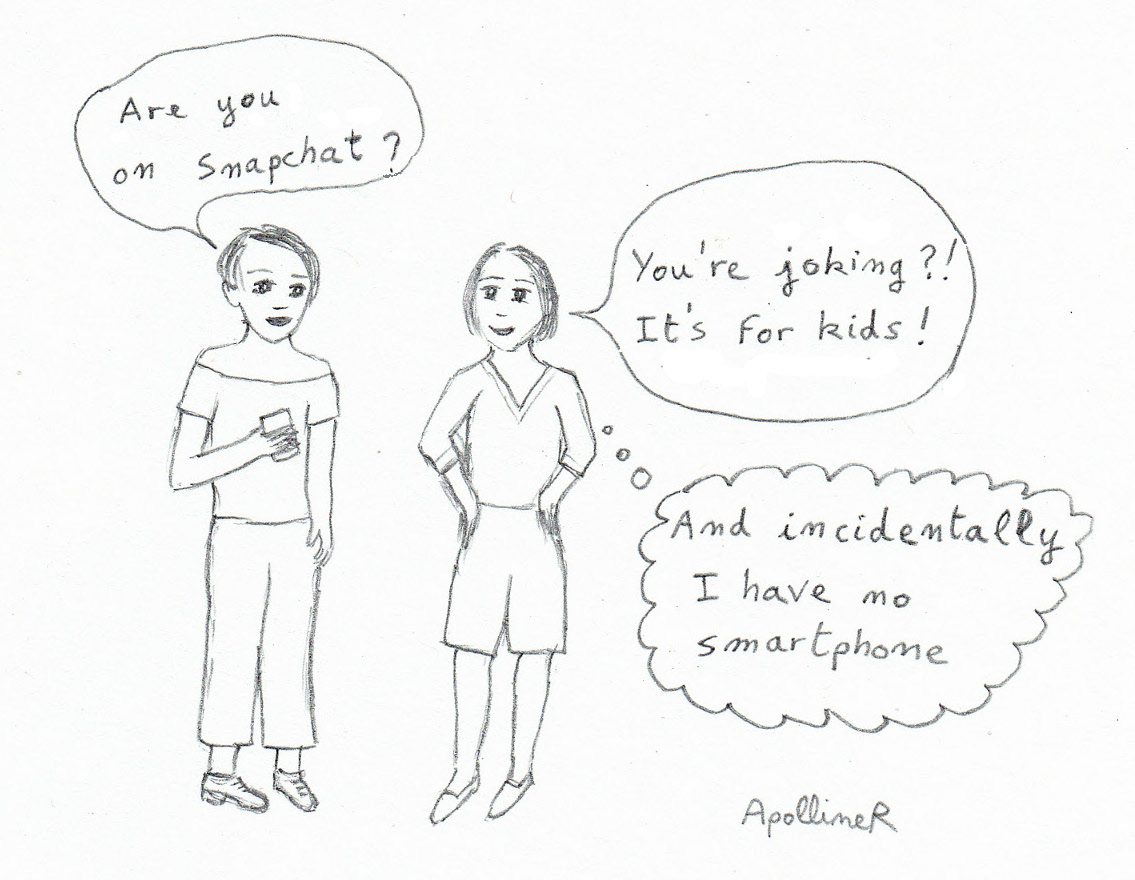 Are you
on Snapchat ?
You're joking ?!
It's for kids !
And incidentally
I have no
smartphone
ApollineR